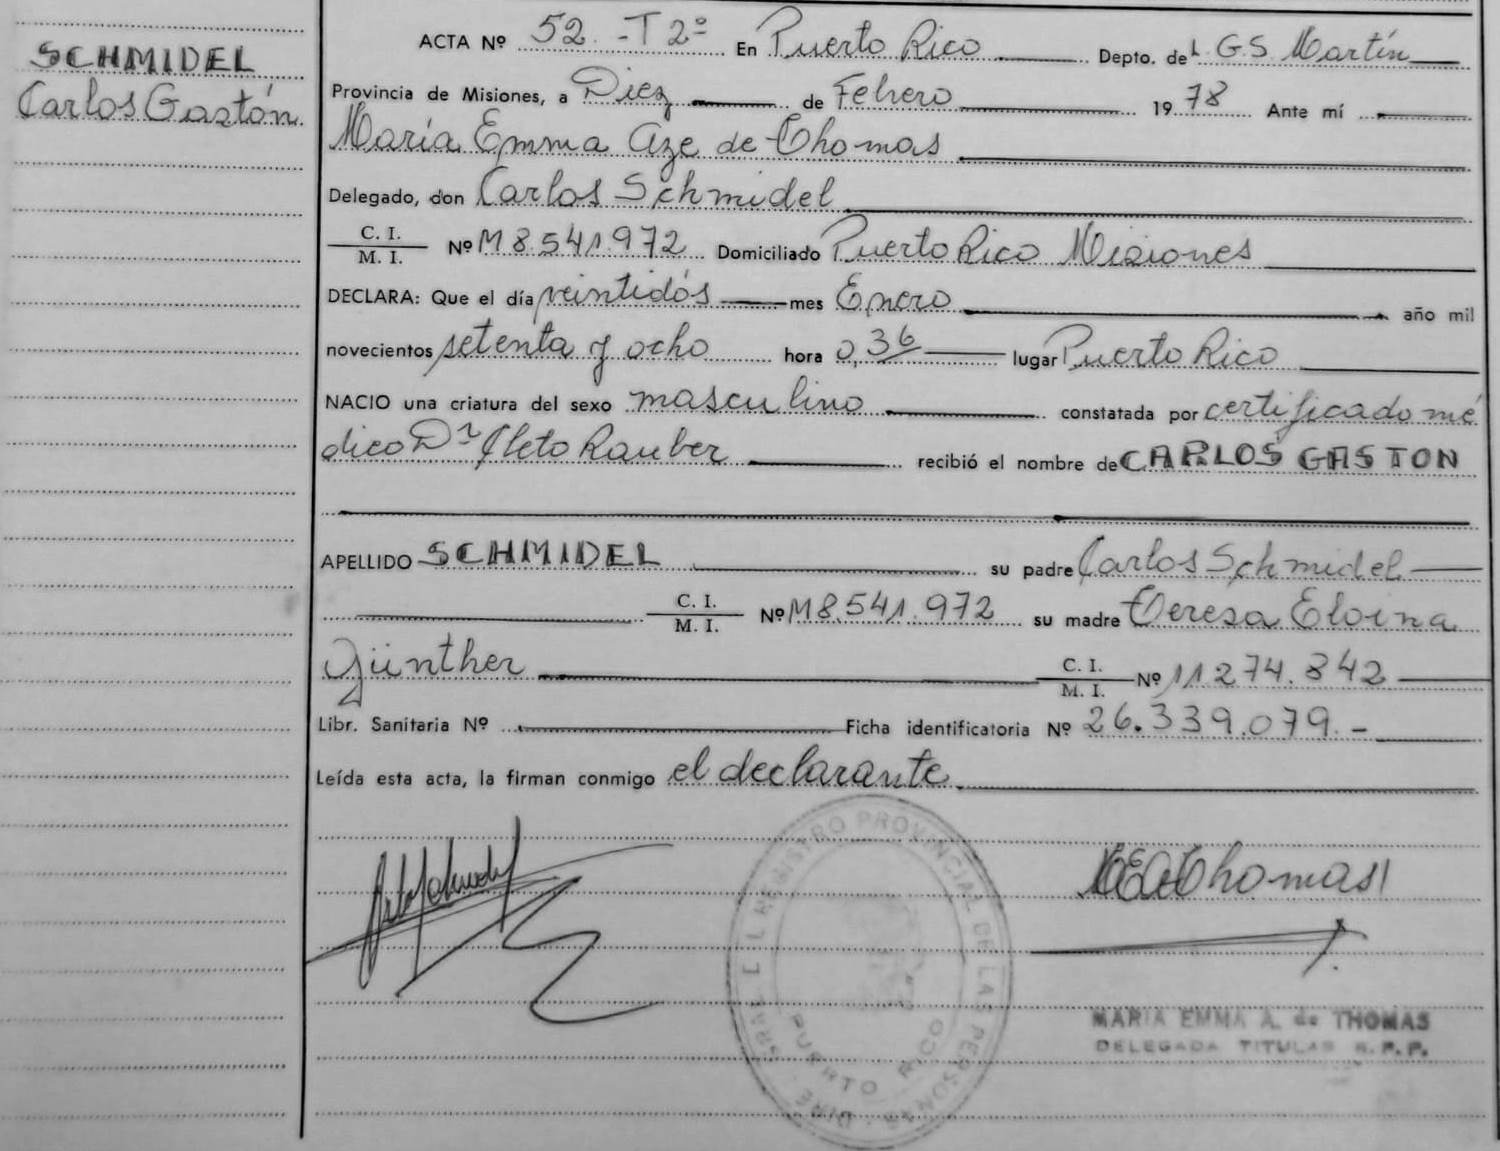 SCHMIDEL
Carlos Gastón
ACTA Nº 52.-T 2º En Puerto Rico Depto. de L. G.S. Martín
Provincia de Misiones, a Diez de Febrero 19 78 Ante mí
María Emma Aze de Thomas
Delegado, don Carlos Schmidel
C. I.
M. I. Nº M 8.541.972 Domiciliado Puerto Rico Misiones
DECLARA: Que el día veintidós mes Enero año mil
novecientos setenta y ocho hora 0,36 lugar Puerto Rico
NACIO una criatura del sexo masculino constatada por certificado mé
dico Dr Cleto Rauber recibió el nombre de CARLOS GASTON
APELLIDO SCHMIDEL su padre Carlos Schmidel
C. I.
M. I. Nº M8.541.972 su madre Teresa Eloina
Günther C. I.
M. I. Nº 11.274.842
Libr. Sanitaria Nº Ficha identificatoria Nº 26.339.079.-
Leída esta acta, la firman conmigo el declarante
REGISTRO PROVINCIAL DE LAS PERSONAS
PUERTO RICO
MEAThomas
MARIA EMMA A. de THOMAS
DELEGADA TITULAR R.P.P.